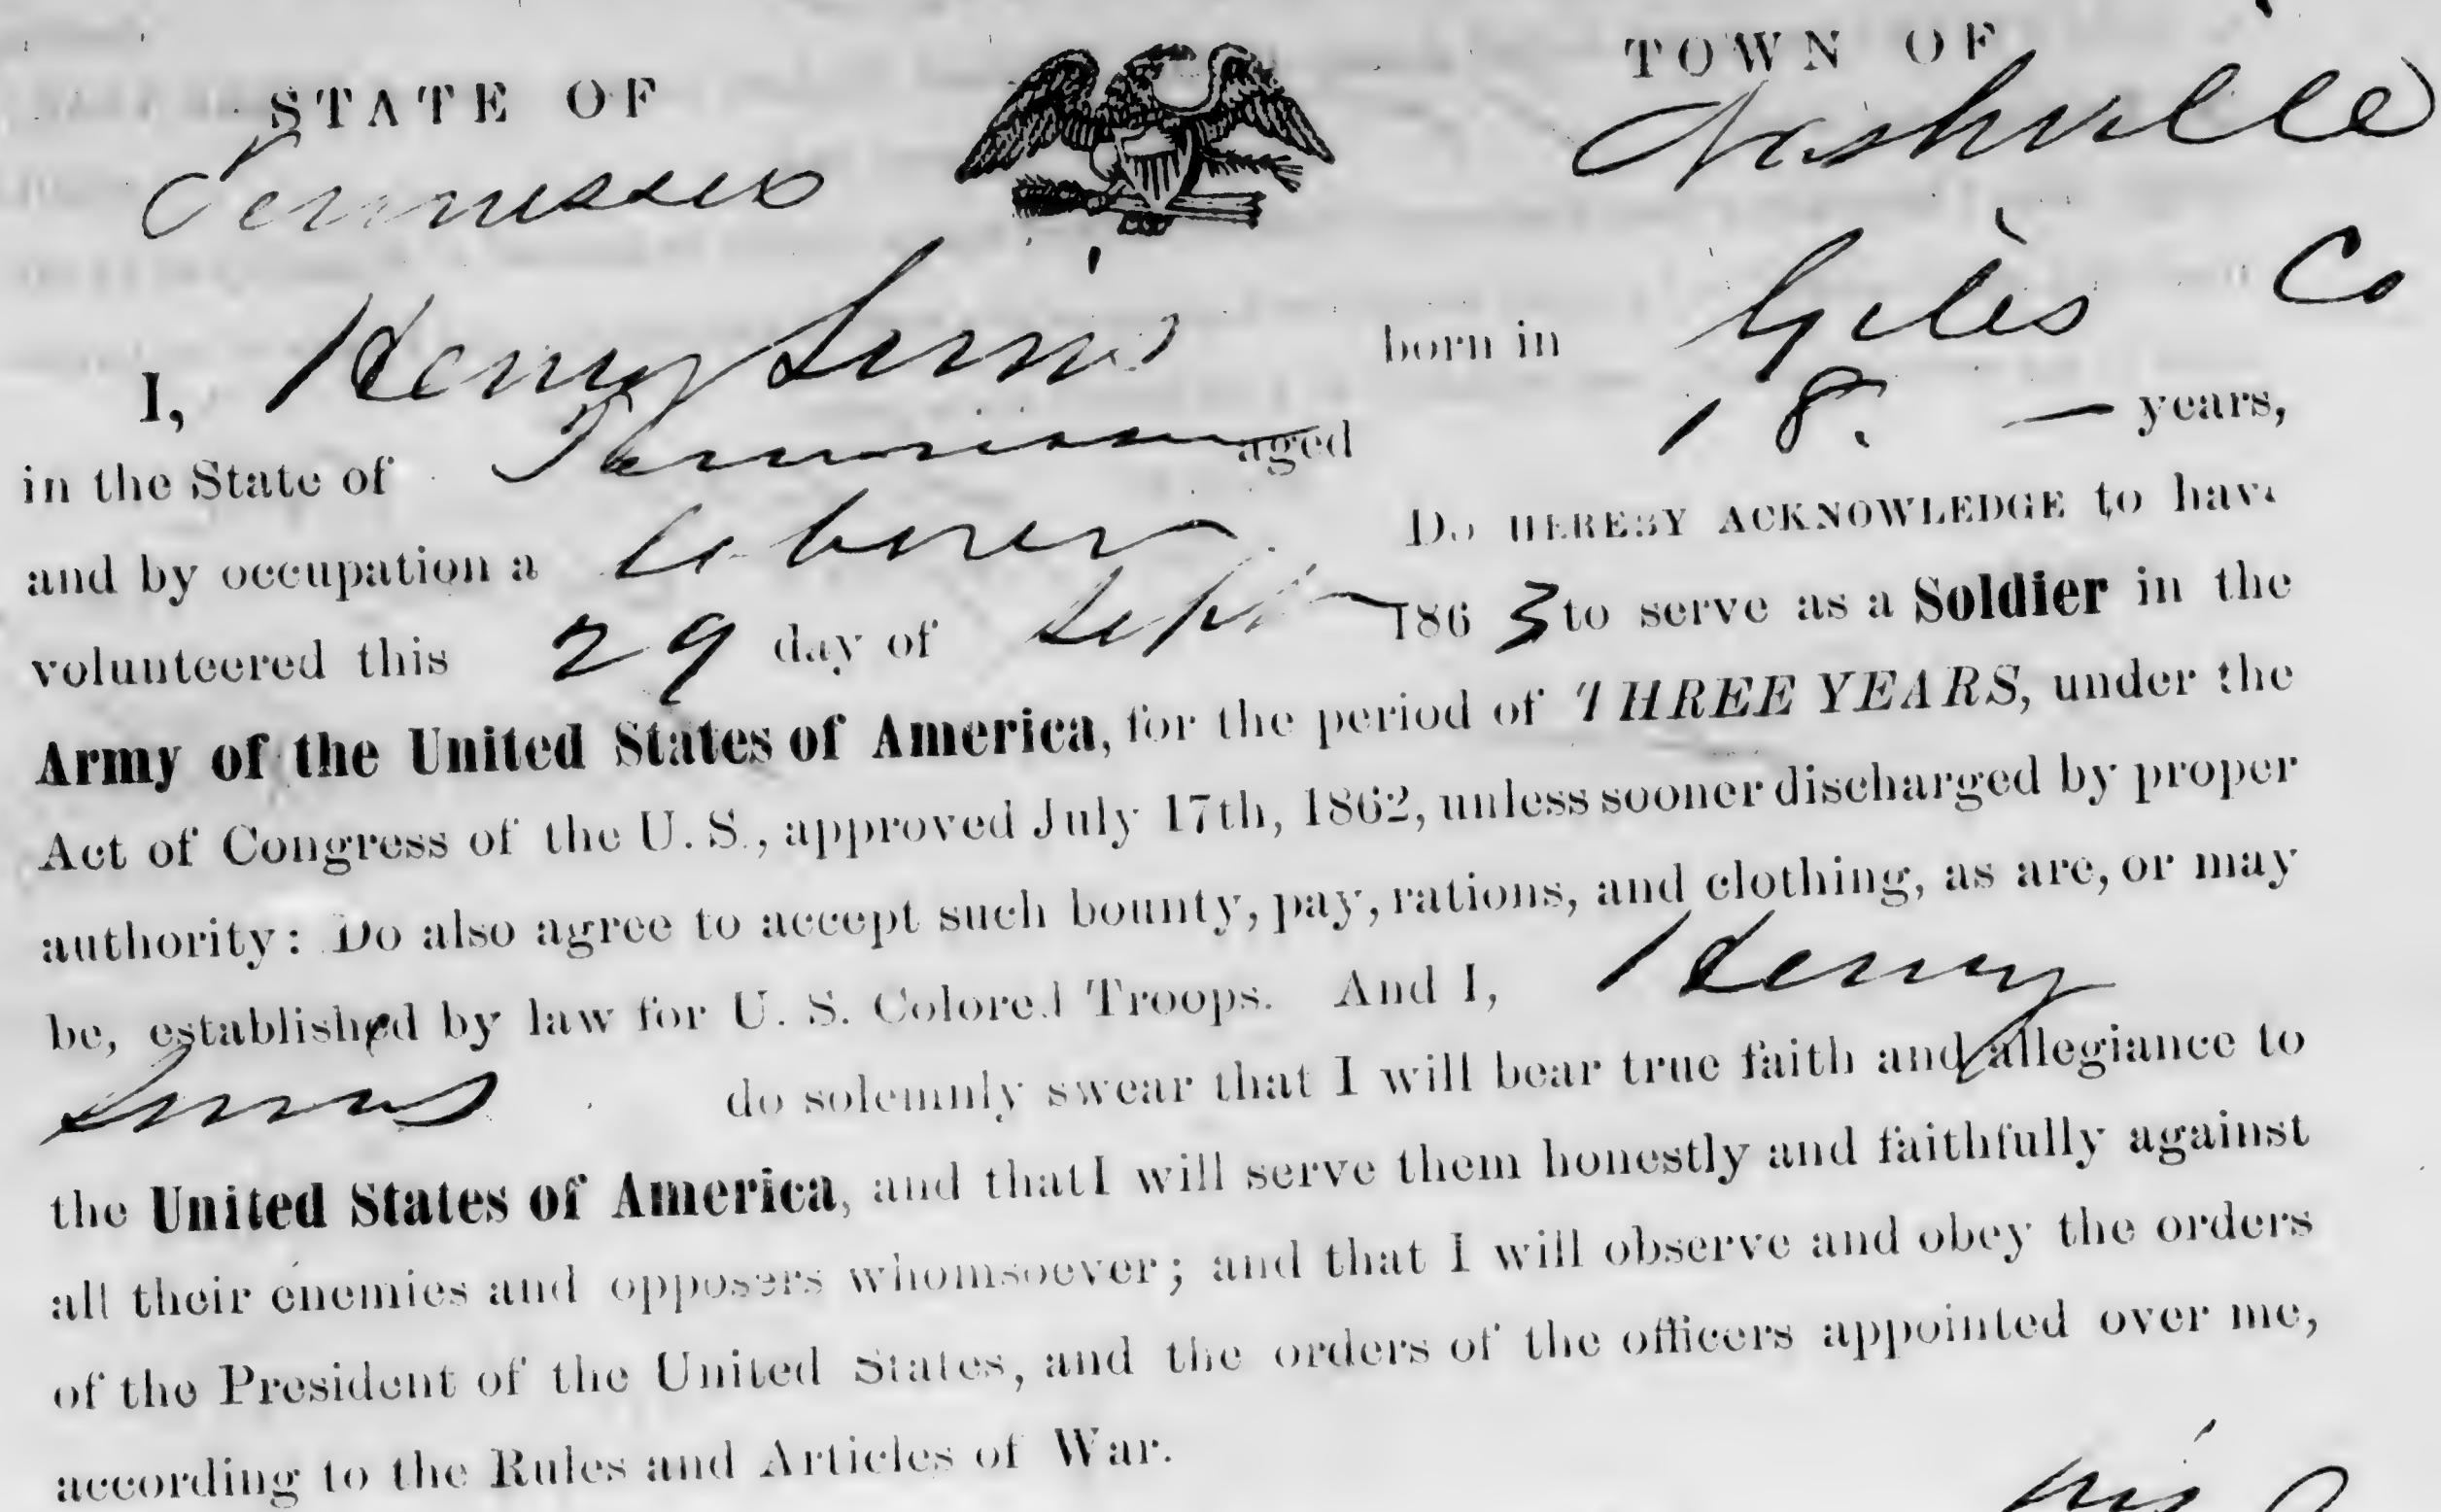 STATE OF
Tennessee
TOWN OF
Nashville
I, Henry Sims born in Giles Co
in the State of Tennessee aged 18. — years,
and by occupation a Laborer Do HEREBY ACKNOWLEDGE to have
volunteered this 29 day of Sept 1863 to serve as a Soldier in the
Army of the United States of America, for the period of THREE YEARS, under the
Act of Congress of the U. S., approved July 17th, 1862, unless sooner discharged by proper
authority: Do also agree to accept such bounty, pay, rations, and clothing, as are, or may
be, established by law for U. S. Colored Troops. And I, Henry
Sims do solemnly swear that I will bear true faith and allegiance to
the United States of America, and that I will serve them honestly and faithfully against
all their enemies and opposers whomsoever; and that I will observe and obey the orders
of the President of the United States, and the orders of the officers appointed over me,
according to the Rules and Articles of War.
his